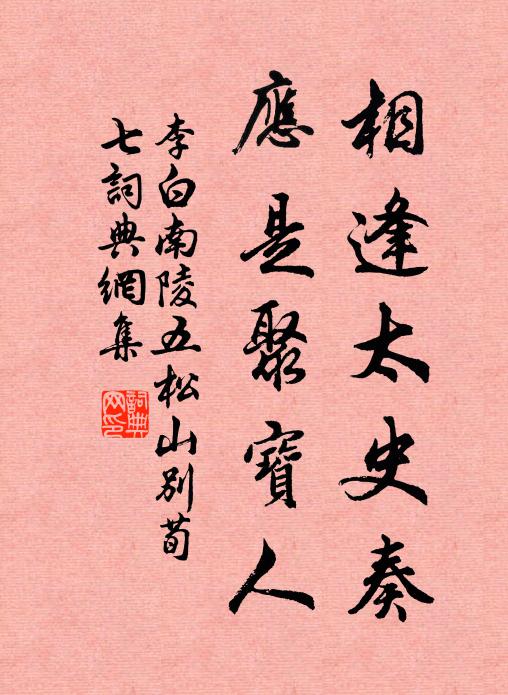 相逢太史奏
應是聚寶人
李白南陵五松山別荀
七詞典網集
詞典
网印